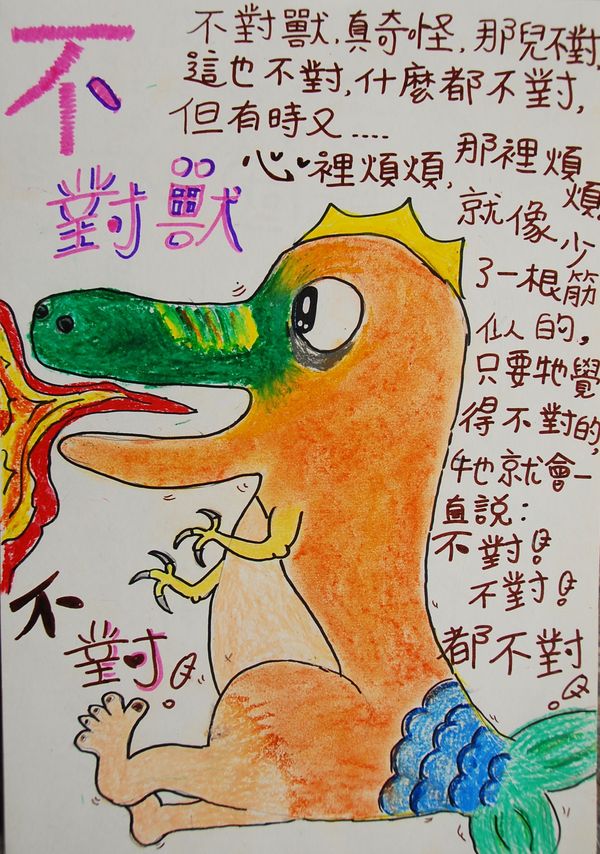 不
對獸
不對獸,真奇怪,那兒不對,
這也不對,什麼都不對,
但有時又....
心裡煩煩,那裡煩煩,
就像少
了一根筋
似的,
只要牠覺
得不對的,
牠就會一
直說:
不對!
不對!
都不對!
不
對!